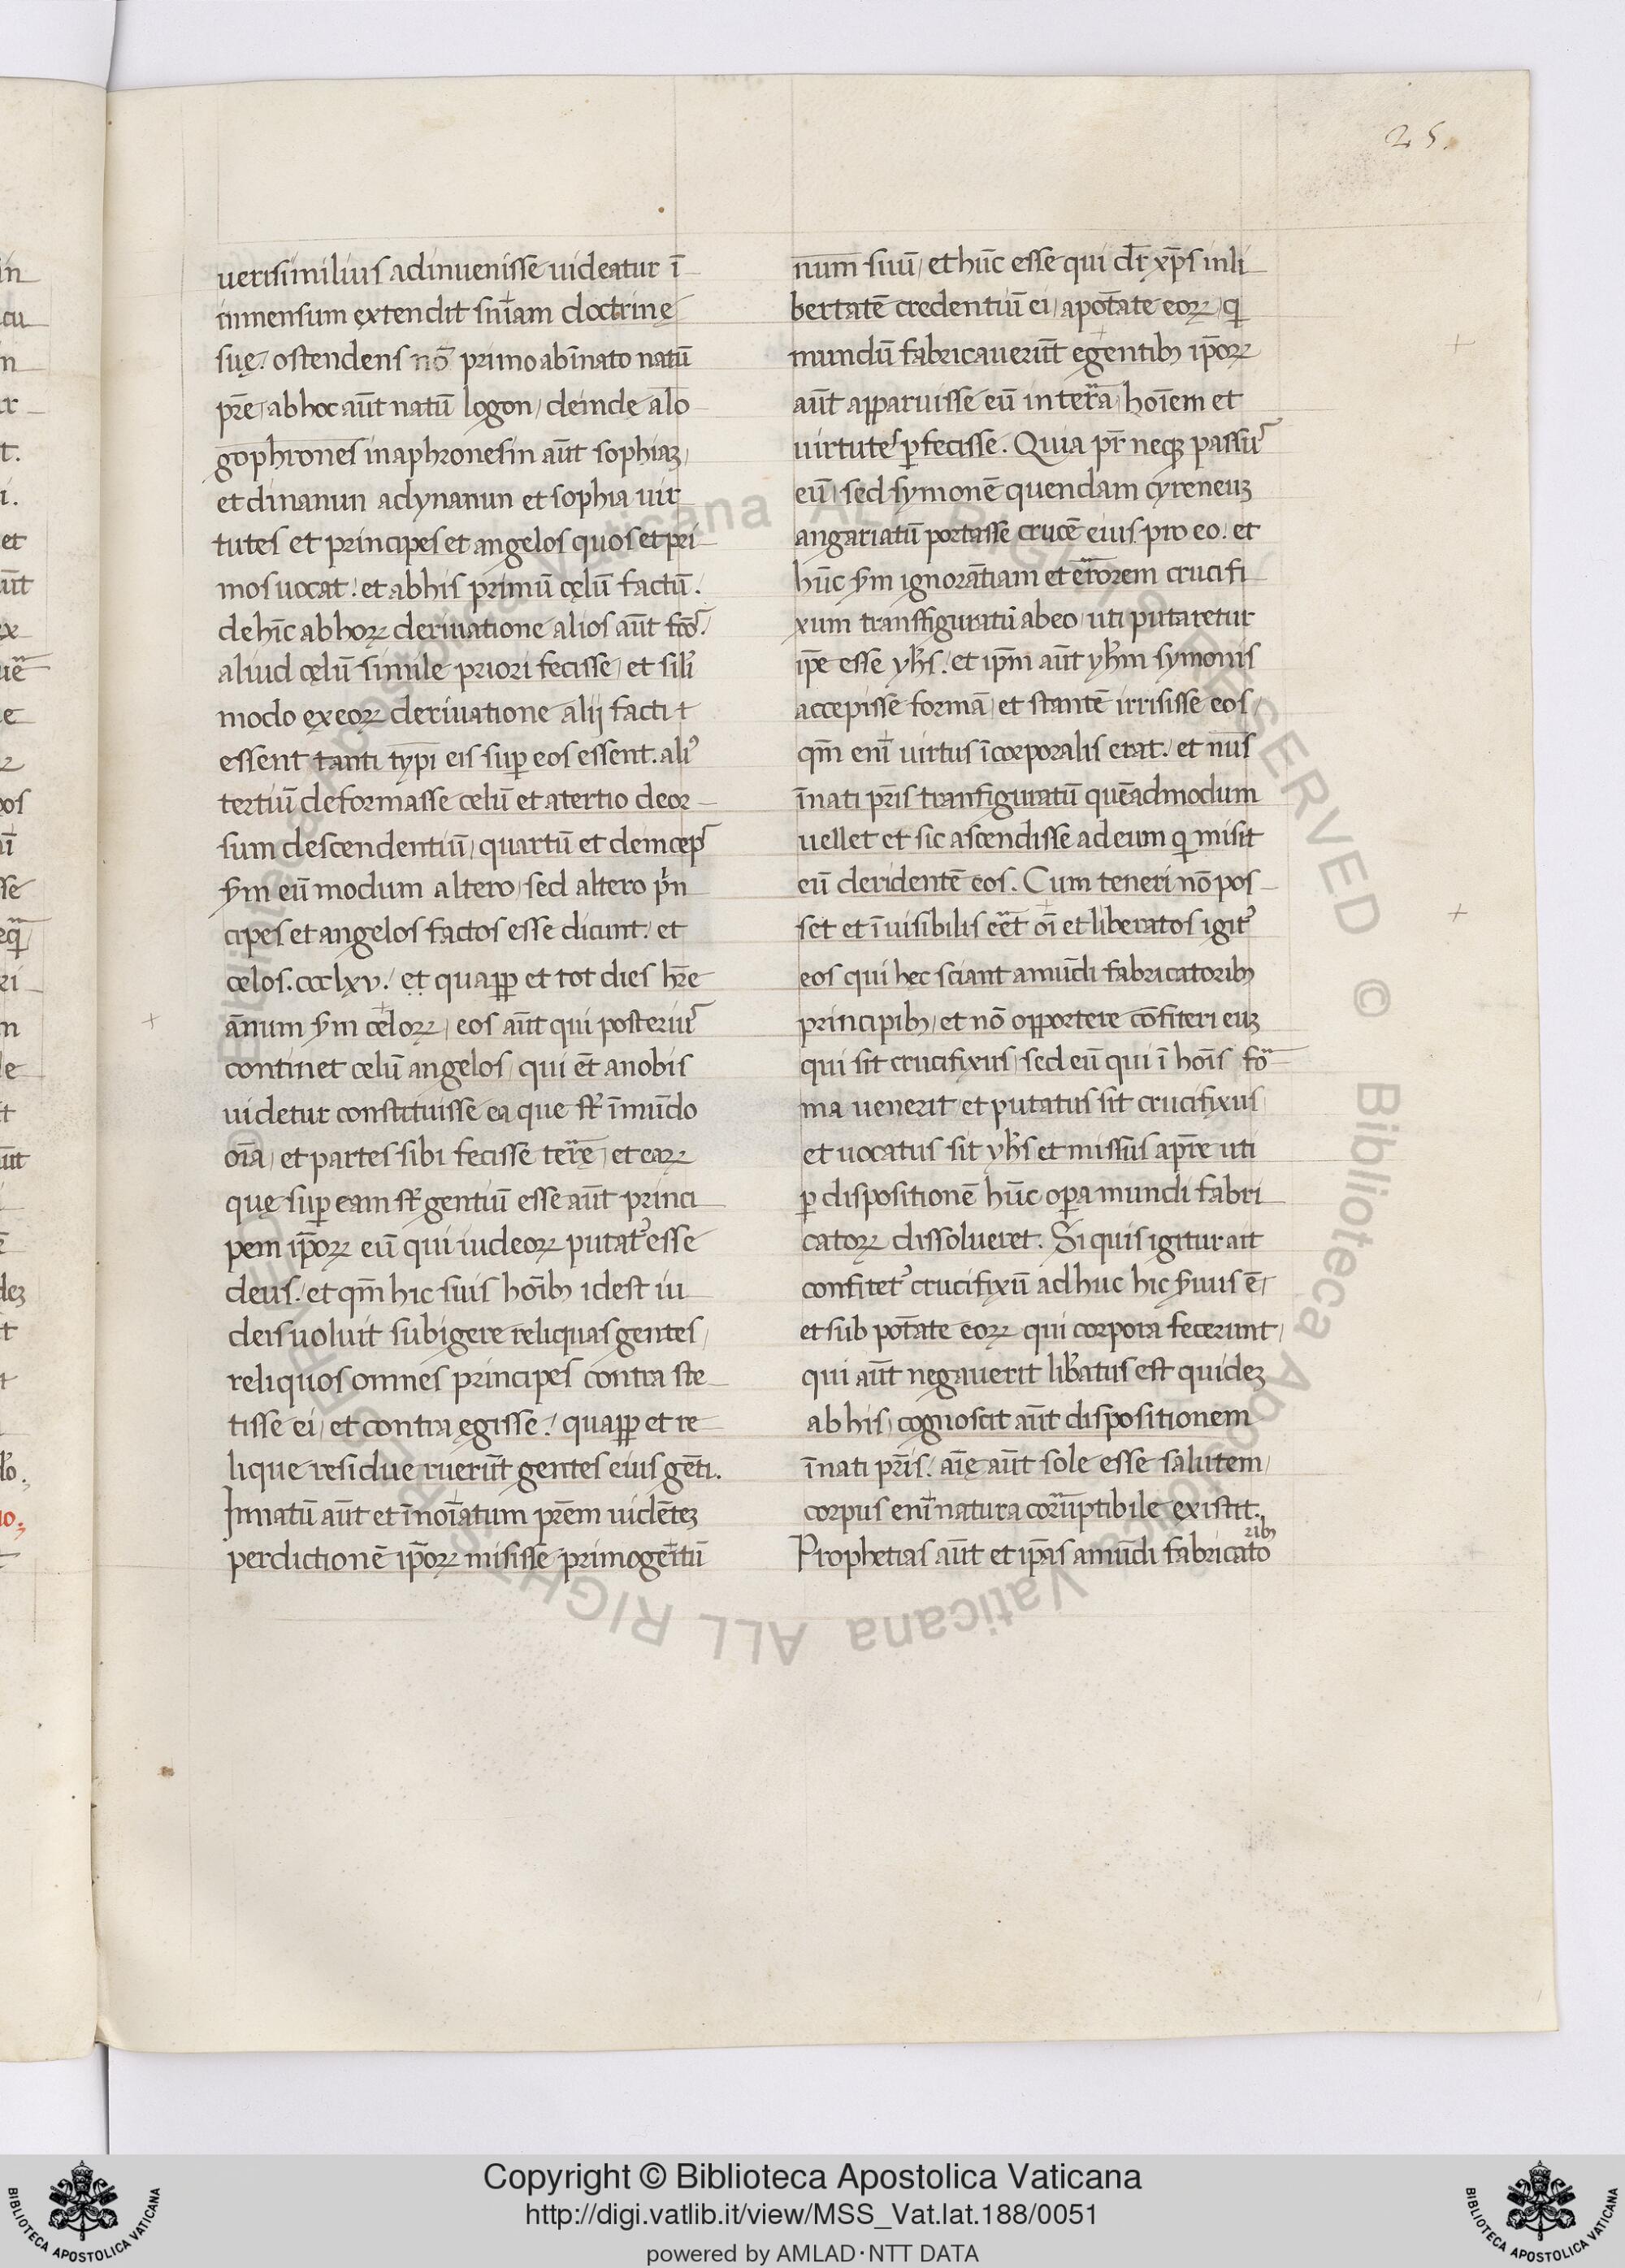 25.
uerisimilius adinuenisse uideatur ī
inmensum extendit sniam doctrinę
suę. ostendens nō primo abinato natū
pr̄e, ab hoc aūt natū logon, deinde a lo
gophrones inaphronesin aūt sophiaʒ,
et dinanun adynanun et sophia uir
tutes et principes et angelos quos et pri
mos uocat. et ab his primū cęlū factū.
dehīc ab hoꝝ deriuatione alios aūt fc̄os.
aliud cęlū simile priori fecisse, et sil̄i
modo ex eoꝝ deriuatione alij facti t
essent tanti typi eis suꝑ eos essent. ali᷒
tertiū deformasse celū et a tertio deor
sum descendentiū, quartū et deincep᷒
ẜm eū modum altero, sed altero p̄n
cipes et angelos factos esse dicunt. et
cęlos. ccclxv. et quaꝓꝑ et tot dies hr̄e
ānnum ẜm cęloꝝ, eos aūt qui posteriu᷒
continet celū angelos, qui et̄ a nobis
uidetur constituisse ea que st̄ ī mūdo
oīa, et partes sibi fecisse terrę, et eaꝝ
quę suꝑ eam st̄ gentiū esse aūt princi
pem ip̄oꝝ eū qui iudeoꝝ putat᷒ esse
deus. et qm̄ hic suis hoībꝫ id est iu
deis uoluit subigere reliquas gentes,
reliquos omnes principes contra ste
tisse ei, et contra ęgisse. quaꝓꝑ et re
lique residue ruerūt gentes eius gēti.
Innatū aūt et īnoīatum prēm uidēteʒ
perdictionē ip̄oꝝ misisse primogeitū
num suū, et hūc esse qui dr̄ xp̄s in li
bertatē credentiū ei, a potāte eoꝝ, q̄
mundū fabricauerūt egentibꝫ ip̄oꝝ
aūt apparuisse eū in terra hoīem et
uirtutes ꝑfecisse. Quia pr̄ neqꝫ passu᷒
eū, sed symonē quendam cyreneuʒ
angariatū portasse crucē eius pro eo. et
hūc ẜm ignorātiam et errorem crucifi
xum transfiguratū ab eo, uti putaretur
ip̄e esse yħs. et ip̄m aūt yħm symonis
accepisse formā, et stantē irrisisse eos,
qm̄ enī uirtus īcorporalis erat. et nūs
īnati pr̄is transfiguratū quēadmodum
uellet et sic ascendisse ad eum q̄ misit
eū deridentē eos. Cum teneri nō pos
set et īuisibilis eēt oī et liberatos igit᷒
eos qui hęc sciant a mūdi fabricatoribꝫ
principibꝫ, et nō opportere cōfiteri euʒ
qui sit crucifixus, sed eū qui ī hoīs for
ma uenerit et putatus sit crucifixus
et uocatus sit yħs et missus a pr̄e uti
ꝑ dispositionē hūc oꝑa mundi fabri
catoꝝ dissolueret. Si quis igitur ait
confitet᷒ crucifixū adhuc hic ẜuus ē,
et sub potāte eoꝝ qui corpora fecerunt,
qui aūt negauerit lib̄atus est quideʒ
ab his, cognoscit aūt dispositionem
īnati pr̄is. aīę aūt sole esse salutem,
corpus enī natura corruptibile existit.
Prophetias aūt et ip̄as a mūdi fabricato
ribꝫ
© Biblioteca Apostolica Vaticana ALL RIGHTS RESERVED
Copyright © Biblioteca Apostolica Vaticana
http://digi.vatlib.it/view/MSS_Vat.lat.188/0051
powered by AMLAD·NTT DATA
BIBLIOTECA APOSTOLICA VATICANA
BIBLIOTECA APOSTOLICA VATICANA